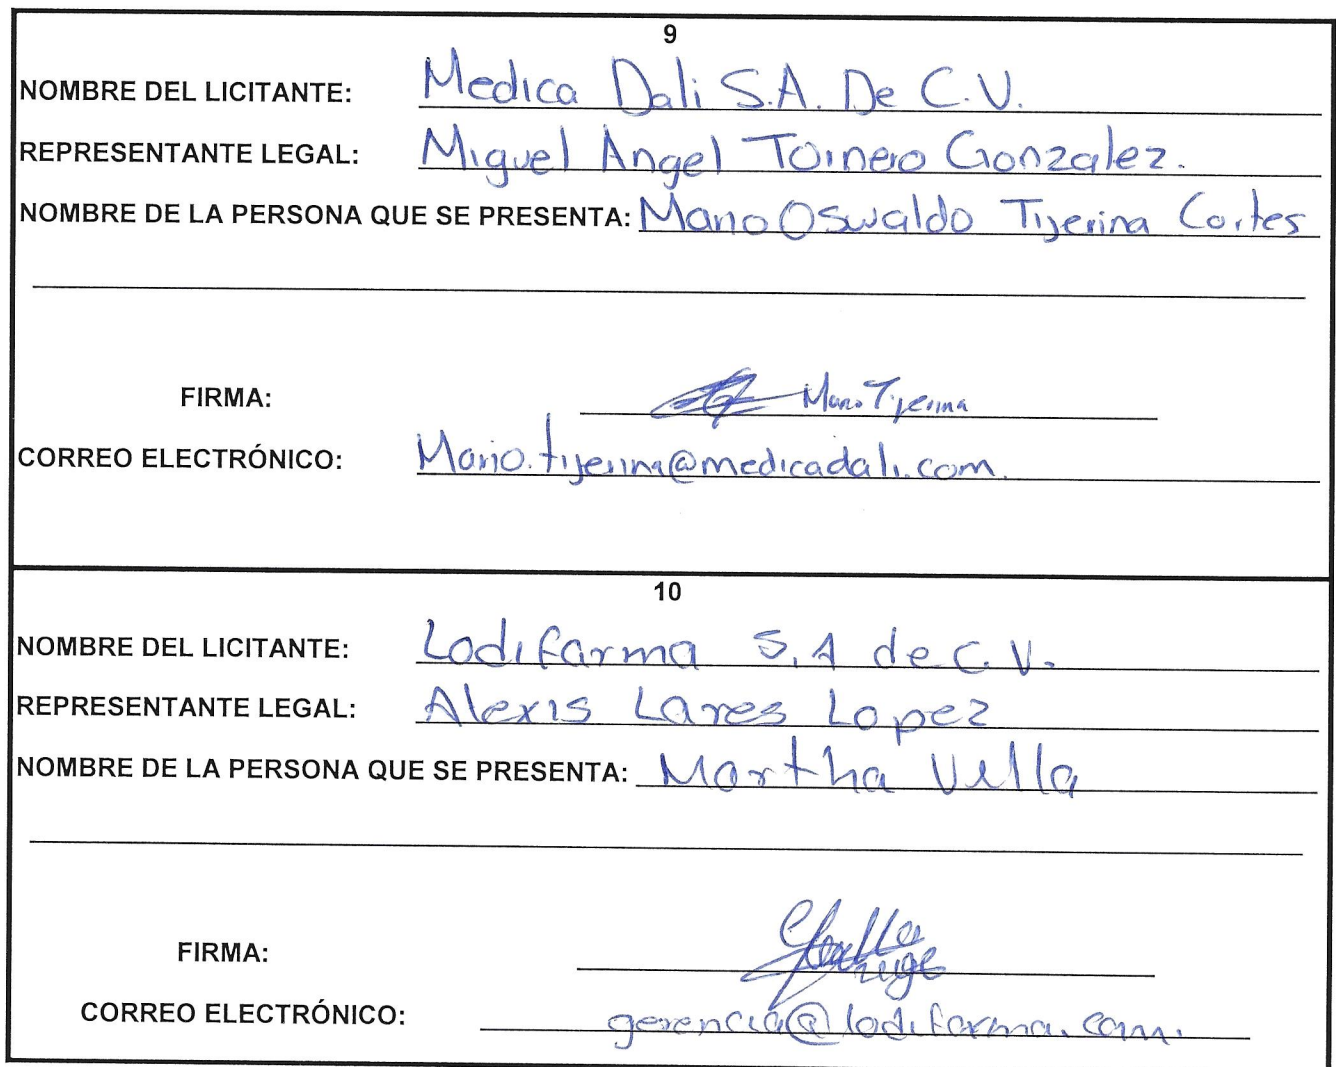 9
NOMBRE DEL LICITANTE: Medica Dali S.A. De C.V.
REPRESENTANTE LEGAL: Miguel Angel Tornero Gonzalez.
NOMBRE DE LA PERSONA QUE SE PRESENTA: Mario Oswaldo Tijerina Cortes
FIRMA: Mario Tijerina
CORREO ELECTRÓNICO: Mario.tijerina@medicadali.com.
10
NOMBRE DEL LICITANTE: Lodifarma S.A de C.V.
REPRESENTANTE LEGAL: Alexis Lares Lopez
NOMBRE DE LA PERSONA QUE SE PRESENTA: Martha
FIRMA:
CORREO ELECTRÓNICO: gerencia@lodifarma.com.